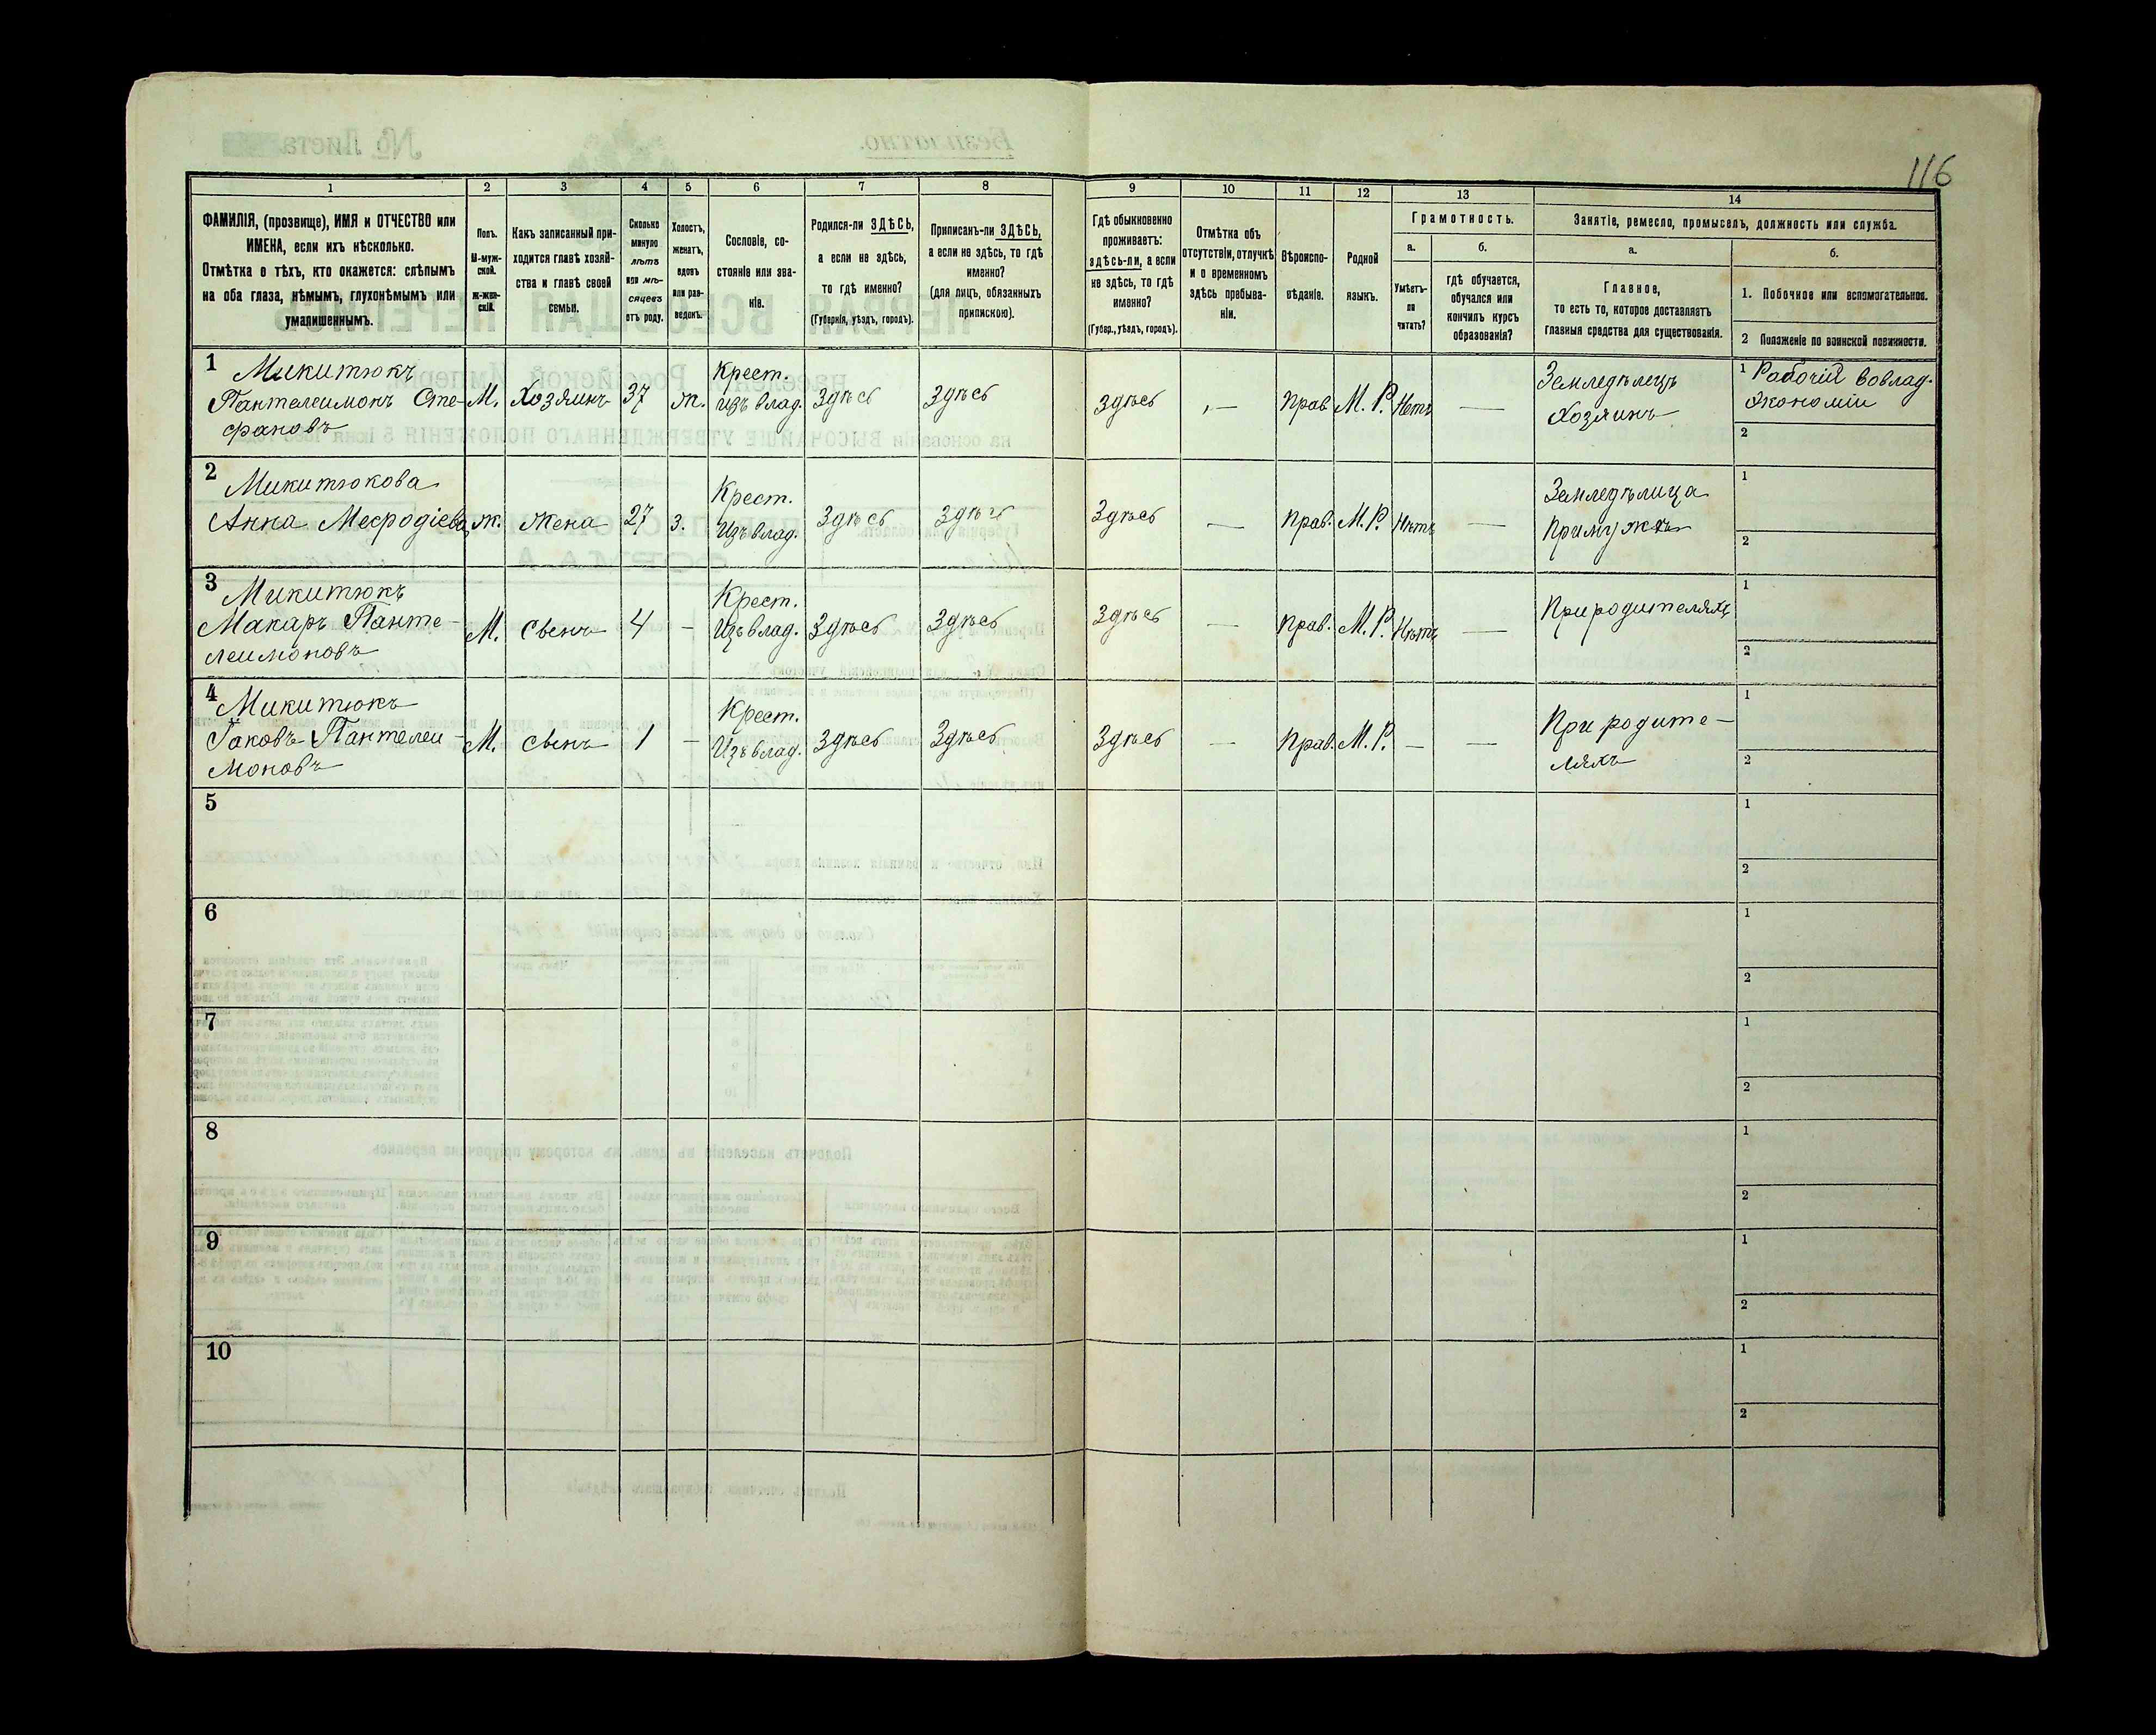 116
1
2
3
4
5
6
7
8
9
10
11
12
13
14
ФАМИЛІЯ, (прозвище), ИМЯ и ОТЧЕСТВО или
ИМЕНА, если ихъ нѣсколько.
Отмѣтка о тѣхъ, кто окажется: слѣпымъ
на оба глаза, нѣмымъ, глухонѣмымъ или
умалишеннымъ.
Полъ.
М-муж-
ской.
Ж-жен-
скій.
Какъ записанный при-
ходится главѣ хозяй-
ства и главѣ своей
семьи.
Сколько
минуло
лѣтъ
или мѣ-
сяцевъ
отъ роду.
Холостъ,
женатъ,
вдовъ
или раз-
веденъ.
Сословіе, со-
стояніе или зва-
ніе.
Родился-ли ЗДѢСЬ,
а если не здѣсь,
то гдѣ именно?
(Губернія, уѣздъ, городъ).
Приписанъ-ли ЗДѢСЬ,
а если не здѣсь, то гдѣ
именно?
(для лицъ, обязанныхъ
припискою).
Гдѣ обыкновенно
проживаетъ:
здѣсь-ли, а если
не здѣсь, то гдѣ
именно?
(Губер., уѣздъ, городъ).
Отмѣтка объ
отсутствіи, отлучкѣ
и о временномъ
здѣсь пребыва-
ніи.
Вѣроиспо-
вѣданіе.
Родной
языкъ.
Грамотность.
а.
Умѣетъ-
ли
читать?
б.
гдѣ обучается,
обучался или
кончилъ курсъ
образованія?
Занятіе, ремесло, промыселъ, должность или служба.
а.
Главное,
то есть то, которое доставляетъ
главныя средства для существованія.
б.
1. Побочное или вспомогательное.
2 Положеніе по воинской повинности.
1 Микитюкъ
Пантелеимонъ Сте-
фановъ
М. Хозяинъ 37 ж.
Крест.
изъ влад.
Здѣсь Здѣсь Здѣсь — Прав. М. Р. Нетъ —
Земледѣлецъ
Хозяинъ
1 Рабочій вовлад.
Экономіи
2
2 Микитюкова
Анна Мефодіева
ж. Жена 27 з.
Крест.
Изъ влад.
Здѣсь Здѣсь Здѣсь — Прав. М. Р. Нѣтъ
Земледѣлица
При мужѣ
1
2
3 Микитюкъ
Макаръ Панте-
леимоновъ
М. Сынъ 4 —
Крест.
Изъ влад.
Здѣсь Здѣсь Здѣсь — Прав. М. Р. Нѣтъ —
При родителяхъ
1
2
4 Микитюкъ
Іаковъ Пантелеи-
моновъ
М. Сынъ 1 —
Крест.
Изъ влад.
Здѣсь Здѣсь Здѣсь — Прав. М. Р. — —
При родите-
ляхъ
1
2
5
1
2
6
1
2
7
1
2
8
1
2
9
1
2
10
1
2